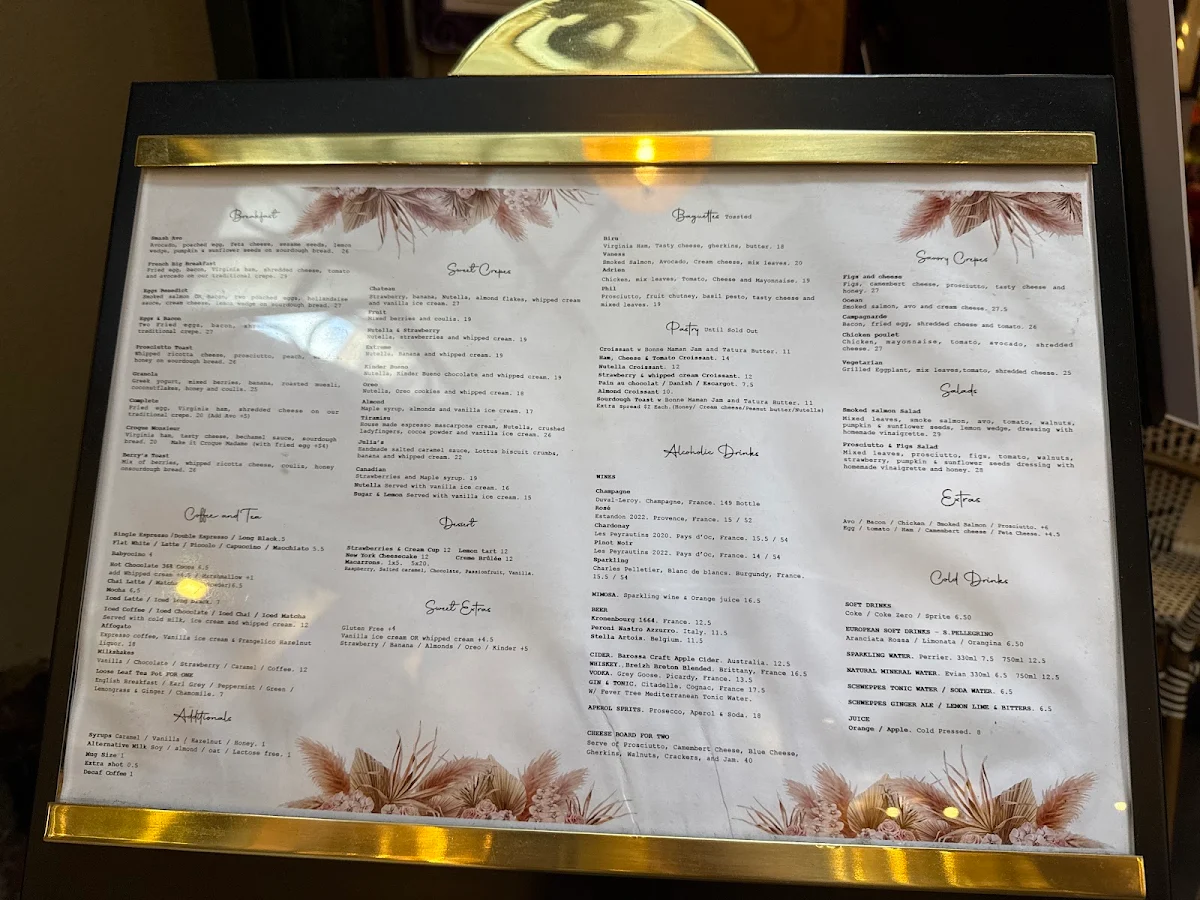 Breakfast
Smash Avo
Avocado, poached egg, Feta cheese, sesame seeds, lemon
wedge, pumpkin & sunflower seeds on sourdough bread. 26
French Big Breakfast
Fried egg, Bacon, Virginia ham, shredded cheese, tomato
and avocado on our traditional crepe. 29
Eggs Benedict
Smoked salmon OR bacon, two poached eggs, hollandaise
sauce, cream cheese, lemon wedge on sourdough bread. 27
Eggs & Bacon
Two Fried eggs, bacon,
traditional crepe. 27
Prosciutto Toast
Whipped ricotta cheese, prosciutto, peach,
honey on sourdough bread. 26
Granola
Greek yogurt, mixed berries, banana, roasted muesli,
coconutflakes, honey and coulis. 25
Complete
Fried egg, Virginia ham, shredded cheese on our
traditional crepe. 20 (Add Avo +5)
Croque Monsieur
Virginia ham, tasty cheese, bechamel sauce, sourdough
bread. 20 Make it Croque Madame (with fried egg +$4)
Berry's Toast
Mix of berries, whipped ricotta cheese, coulis, honey
onsourdough bread. 26
Coffee and Tea
Single Espresso /Double Espresso / Long Black.5
Flat White / Latte / Piccolo / Capuccino / Macchiato 5.5
Babycino 4
Hot Chocolate 365 Cocoa 6.5
add Whipped cream / Marshmallow +1
Chai Latte / Matcha
Mocha 6.5
Iced Latte / Iced Long Black. 7
Iced Coffee / Iced Chocolate / Iced Chai / Iced Matcha
Served with cold milk, ice cream and whipped cream. 12
Affogato
Espresso coffee, Vanilla ice cream & Frangelico Hazelnut
liquor. 18
Milkshakes
Vanilla / Chocolate / Strawberry / Caramel / Coffee. 12
Loose Leaf Tea Pot FOR ONE
English Breakfast / Earl Grey / Peppermint / Green /
Lemongrass & Ginger / Chamomile. 7
Additionals
Syrups Caramel / Vanilla / Hazelnut / Honey. 1
Alternative Milk Soy / almond / oat / Lactose free. 1
Mug Size 1
Extra shot 0.5
Decaf Coffee 1
Sweet Crepes
Chateau
Strawberry, banana, Nutella, almond flakes, whipped cream
and vanilla ice cream. 27
Fruit
Mixed berries and coulis. 19
Nutella & Strawberry
Nutella, strawberries and whipped cream. 19
Extreme
Nutella, Banana and whipped cream. 19
Kinder Bueno
Nutella, Kinder Bueno chocolate and whipped cream. 19
Oreo
Nutella, Oreo cookies and whipped cream. 18
Almond
Maple syrup, almonds and vanilla ice cream. 17
Tiramisu
House made espresso mascarpone cream, Nutella, crushed
ladyfingers, cocoa powder and vanilla ice cream. 26
Julia's
Handmade salted caramel sauce, Lottus biscuit crumbs,
banana and whipped cream. 22
Canadian
Strawberries and Maple syrup. 19
Nutella Served with vanilla ice cream. 16
Sugar & Lemon Served with vanilla ice cream. 15
Dessert
Strawberries & Cream Cup 12 Lemon tart 12
New York Cheesecake 12 Creme Brûlée 12
Macarrons. 1x5. 5x20.
Raspberry, Salted caramel, Chocolate, Passionfruit, Vanilla.
Sweet Extras
Gluten Free +4
Vanilla ice cream OR whipped cream +4.5
Strawberry / Banana / Almonds / Oreo / Kinder +5
Baguettes Toasted
Biru
Virginia Ham, Tasty cheese, gherkins, butter. 18
Vaness
Smoked Salmon, Avocado, Cream cheese, mix leaves. 20
Adrien
Chicken, mix leaves, Tomato, Cheese and Mayonnaise. 19
Phil
Prosciutto, fruit chutney, basil pesto, tasty cheese and
mixed leaves. 19
Pastry Until Sold Out
Croissant w Bonne Maman Jam and Tatura Butter. 11
Ham, Cheese & Tomato Croissant. 14
Nutella Croissant. 12
Strawberry & whipped cream Croissant. 12
Pain au chocolat / Danish / Escargot. 7.5
Almond Croissant 10.
Sourdough Toast w Bonne Maman Jam and Tatura Butter. 11
Extra spread $2 Each.(Honey/ Cream cheese/Peanut butter/Nutella)
Alcoholic Drinks
WINES
Champagne
Duval-Leroy. Champagne, France. 149 Bottle
Rosé
Estandon 2022. Provence, France. 15 / 52
Chardonay
Les Peyrautins 2020. Pays d'Oc, France. 15.5 / 54
Pinot Noir
Les Peyrautins 2022. Pays d'Oc, France. 14 / 54
Sparkling
Charles Pelletier, Blanc de blancs. Burgundy, France.
15.5 / 54
MIMOSA. Sparkling wine & Orange juice 16.5
BEER
Kronenbourg 1664. France. 12.5
Peroni Nastro Azzurro. Italy. 11.5
Stella Artois. Belgium. 11.5
CIDER. Barossa Craft Apple Cider. Australia. 12.5
WHISKEY. Breizh Breton Blended. Brittany, France 16.5
VODKA. Grey Goose. Picardy, France. 13.5
GIN & TONIC. Citadelle. Cognac, France 17.5
W/ Fever Tree Mediterranean Tonic Water.
APEROL SPRITS. Prosecco, Aperol & Soda. 18
CHEESE BOARD FOR TWO
Serve of Prosciutto, Camembert Cheese, Blue Cheese,
Gherkins, Walnuts, Crackers, and Jam. 40
Savory Crepes
Figs and cheese
Figs, camembert cheese, prosciutto, tasty cheese and
honey. 27
Ocean
Smoked salmon, avo and cream cheese. 27.5
Campagnarde
Bacon, fried egg, shredded cheese and tomato. 26
Chicken poulet
Chicken, mayonnaise, tomato, avocado, shredded
cheese. 27
Vegetarian
Grilled Eggplant, mix leaves,tomato, shredded cheese. 25
Salads
Smoked salmon Salad
Mixed leaves, smoke salmon, avo, tomato, walnuts,
pumpkin & sunflower seeds, lemon wedge, dressing with
homemade vinaigrette. 29
Prosciutto & Figs Salad
Mixed leaves, prosciutto, figs, tomato, walnuts,
strawberry, pumpkin & sunflower seeds dressing with
homemade vinaigrette and honey. 28
Extras
Avo / Bacon / Chicken / Smoked Salmon / Prosciutto. +6
Egg / tomato / Ham / Camembert cheese / Feta Cheese. +4.5
Cold Drinks
SOFT DRINKS
Coke / Coke Zero / Sprite 6.50
EUROPEAN SOFT DRINKS - S.PELLEGRINO
Aranciata Rossa / Limonata / Orangina 6.50
SPARKLING WATER. Perrier. 330ml 7.5 750ml 12.5
NATURAL MINERAL WATER. Evian 330ml 6.5 750ml 12.5
SCHWEPPES TONIC WATER / SODA WATER. 6.5
SCHWEPPES GINGER ALE / LEMON LIME & BITTERS. 6.5
JUICE
Orange / Apple. Cold Pressed. 8